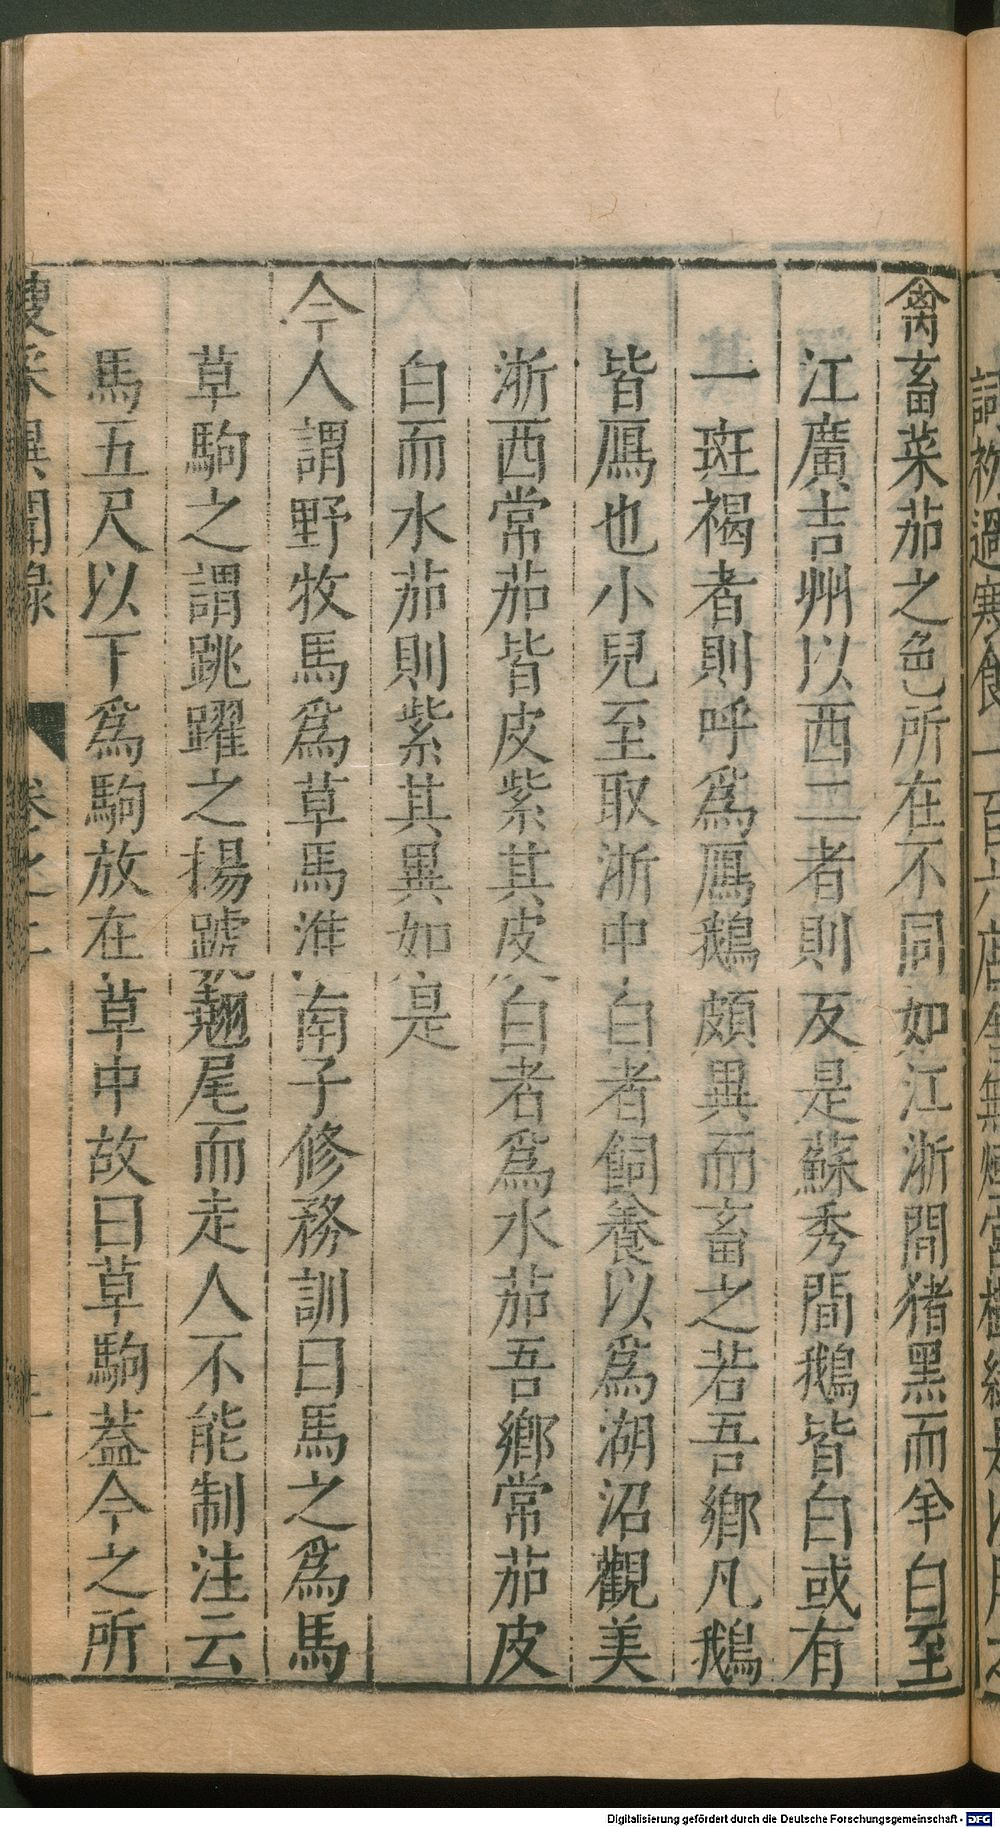 禽畜菜茄之色所在不同如江浙間猪黑而羊白至
江廣吉州以西二者則反是蘇秀間鵝皆白或有
一斑褐者則呼為鴈鵝頗異而畜之若吾鄉凡鵝
皆鴈也小兒至取浙中白者飼養以為湖沼觀美
浙西常茄皆皮紫其皮白者為水茄吾鄉常茄皮
白而水茄則紫其異如是
今人謂野牧馬為草馬淮南子修務訓曰馬之為
草駒之謂跳躍之揚蹏翹尾而走人不能制注云
馬五尺以下為駒放在草中故曰草駒蓋今之所
異聞錄 卷之二
Digitalisierung gefördert durch die Deutsche Forschungsgemeinschaft - DFG